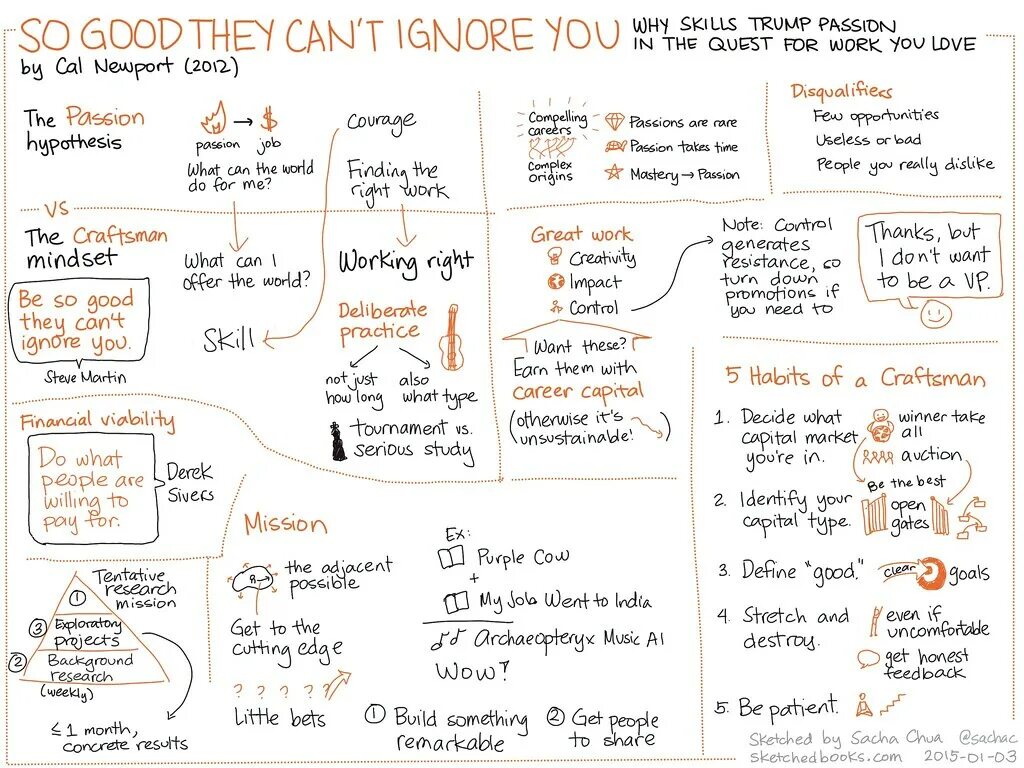 SO GOOD THEY CAN'T IGNORE YOU
WHY SKILLS TRUMP PASSION
IN THE QUEST FOR WORK YOU LOVE
by Cal Newport (2012)
The Passion
hypothesis
passion
$
job
What can the world
do for me?
courage
Finding the
right work
VS
The Craftsman
mindset
Be so good
they can't
ignore you.
Steve Martin
What can I
offer the world?
Skill
Working right
Deliberate
practice
not just
how long
also
what type
tournament vs.
serious study
Compelling
careers
Complex
origins
Passions are rare
Passion takes time
Mastery → Passion
Disqualifiers
Few opportunities
Useless or bad
People you really dislike
Great work
Creativity
Impact
Control
Note: Control
generates
resistance, so
turn down
promotions if
you need to
Thanks, but
I don't want
to be a VP.
Want these?
Earn them with
career capital
(otherwise it's
unsustainable!)
Financial viability
Do what
people are
willing to
pay for.
Derek
Sivers
Tentative
research
mission
①
③ Exploratory
projects
② Background
research
(weekly)
≤ 1 month,
concrete results
Mission
the adjacent
possible
Get to the
cutting edge
? ? ? ? ?
Little bets
Ex:
Purple Cow
+
My Job Went to India
Archaeopteryx Music AI
Wow?
① Build something
remarkable
② Get people
to share
5 Habits of a Craftsman
1. Decide what
capital market
you're in.
winner take
all
auction
Be the best
2. Identify your
capital type.
open
gates
3. Define "good."
clear
goals
4. Stretch and
destroy.
even if
uncomfortable
get honest
feedback
5. Be patient.
Sketched by Sacha Chua @sachac
sketchedbooks.com 2015-01-03